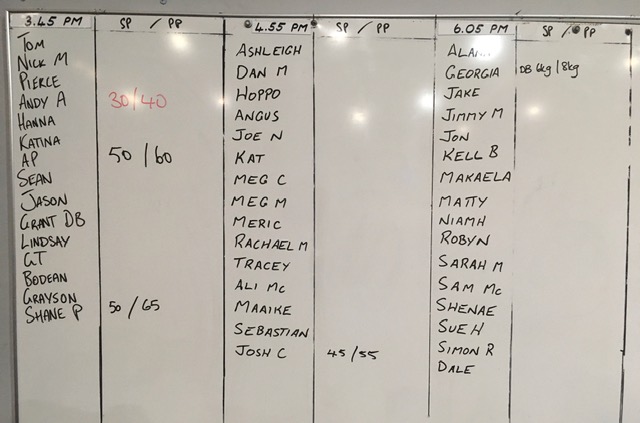 3.45 PM SP / PP
TOM
NICK M
PIERCE
ANDY A 30/40
HANNA
KATINA
AP 50 / 60
SEAN
JASON
GRANT DB
LINDSAY
GT
BODEAN
GRAYSON
SHANE P 50 / 65
4.55 PM SP / PP
ASHLEIGH
DAN M
HOPPO
ANGUS
JOE N
KAT
MEG C
MEG M
MERIC
RACHAEL M
TRACEY
ALI MC
MAAIKE
SEBASTIAN
JOSH C 45/55
6.05 PM SP / PP
GEORGIA DB 6kg / 8kg
JAKE
JIMMY M
JON
KELL B
MAKAELA
MATTY
NIAMH
ROBYN
SARAH M
SAM MC
SHENAE
SUE H
SIMON R
DALE